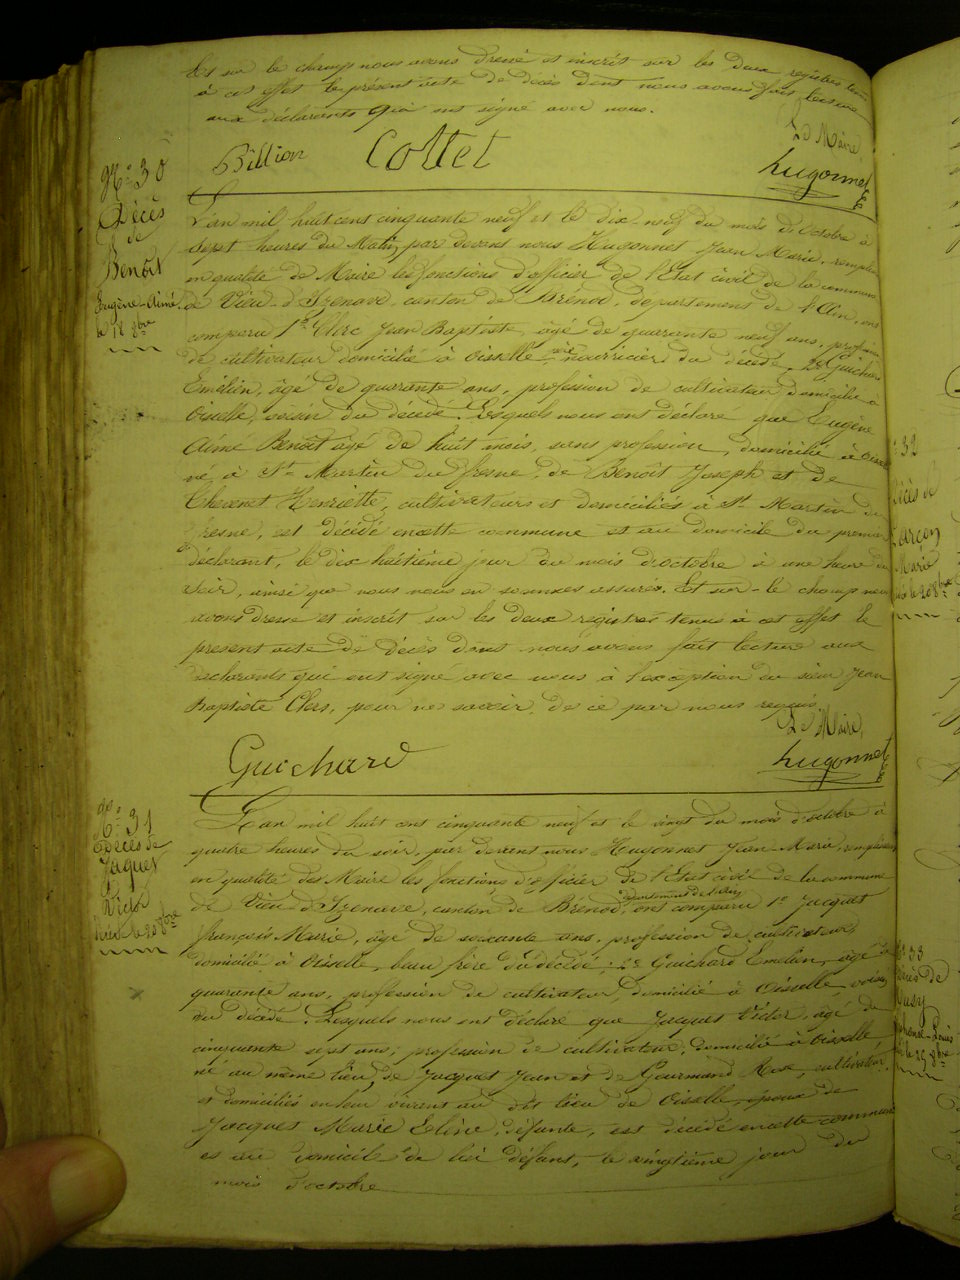 Et sur le champ nous avons dressé et inscrit sur les deux registres tenus
à cet effet le présent acte de décès dont nous avons fait lecture
aux déclarants qui ont signé avec nous.
Le Maire,
Billion Collet hugonnet
N° 30
Décès
de
Benoît
Eugène-Aimé
le 18 8bre
L'an mil huit cent cinquante neuf et le dix-neuf du mois d'octobre à
Sept heures du Matin, par devant nous Hugonnet Jean Marie, remplissant
en qualité de Maire les fonctions d'officier de l'Etat civil de la commune
de Vieu-d'Izenave, canton de Brénod, département de l'Ain, ont
comparu 1° Clerc Jean Baptiste, âgé de quarante neuf ans, profession
de cultivateur domicilié à Oisselle, père nourricier du décédé, 2° Guichard
Emélien, âgé de quarante ans, profession de cultivateur domicilié à
Oiselle, voisin du décédé. Lesquels nous ont déclaré que Eugène
Aimé Benoît âgé de huit mois, sans profession, domicilié à Oisselle
né à St Martin du fresne, de Benoît Joseph et de
Chevenet Henriette, cultivateurs et domiciliés à St Martin du
fresne, est décédé en cette commune et au domicile du premier
déclarant, le dix huitième jour du mois d'octobre à une heure du
soir, ainsi que nous nous en sommes assurés. Et sur-le champ nous
avons dressé et inscrit sur les deux registres tenus à cet effet le
présent acte de décès dont nous avons fait lecture aux
déclarants qui ont signé avec nous à l'exception du sieur Jean
Baptiste Clerc, pour ne savoir, de ce par nous requis.
Le Maire,
Guichard hugonnet
N° 31
Décès de
Jaquet
Victor
le 20 8bre
L'an mil huit cent cinquante neuf et le vingt du mois d'octobre à
quatre heures du soir, par devant nous Hugonnet Jean Marie, remplissant
en qualité de Maire les fonctions d'officier de l'Etat civil de la commune
département de l'Ain
de Vieu-d'Izenave, canton de Brénod, ont comparu 1° Jacquet
françois Marie, âgé de soixante ans, profession de cultivateur
domicilié à Oisselle, beau frère du décédé; 2° Guichard Emélien, âgé de
quarante ans, profession de cultivateur, domicilié à Oisselle, voisin
du décédé. Lesquels nous ont déclaré que Jacquet Victor, âgé de
cinquante sept ans, profession de cultivateur, domicilié à Oisselle
né au même lieu, de Jacquet Jean et de Gourmand Rose, cultivateurs
et domiciliés en leur vivant au dit lieu de Oiselle, époux de
Jacquet Marie Eline, défunte, est décédé en cette commune
et au domicile de lui défunt, le vingtième jour du
mois d'octobre
32
Décès de
Garçon
Marie
le 20 8bre
N° 33
Décès de
Louis
le 29 8bre